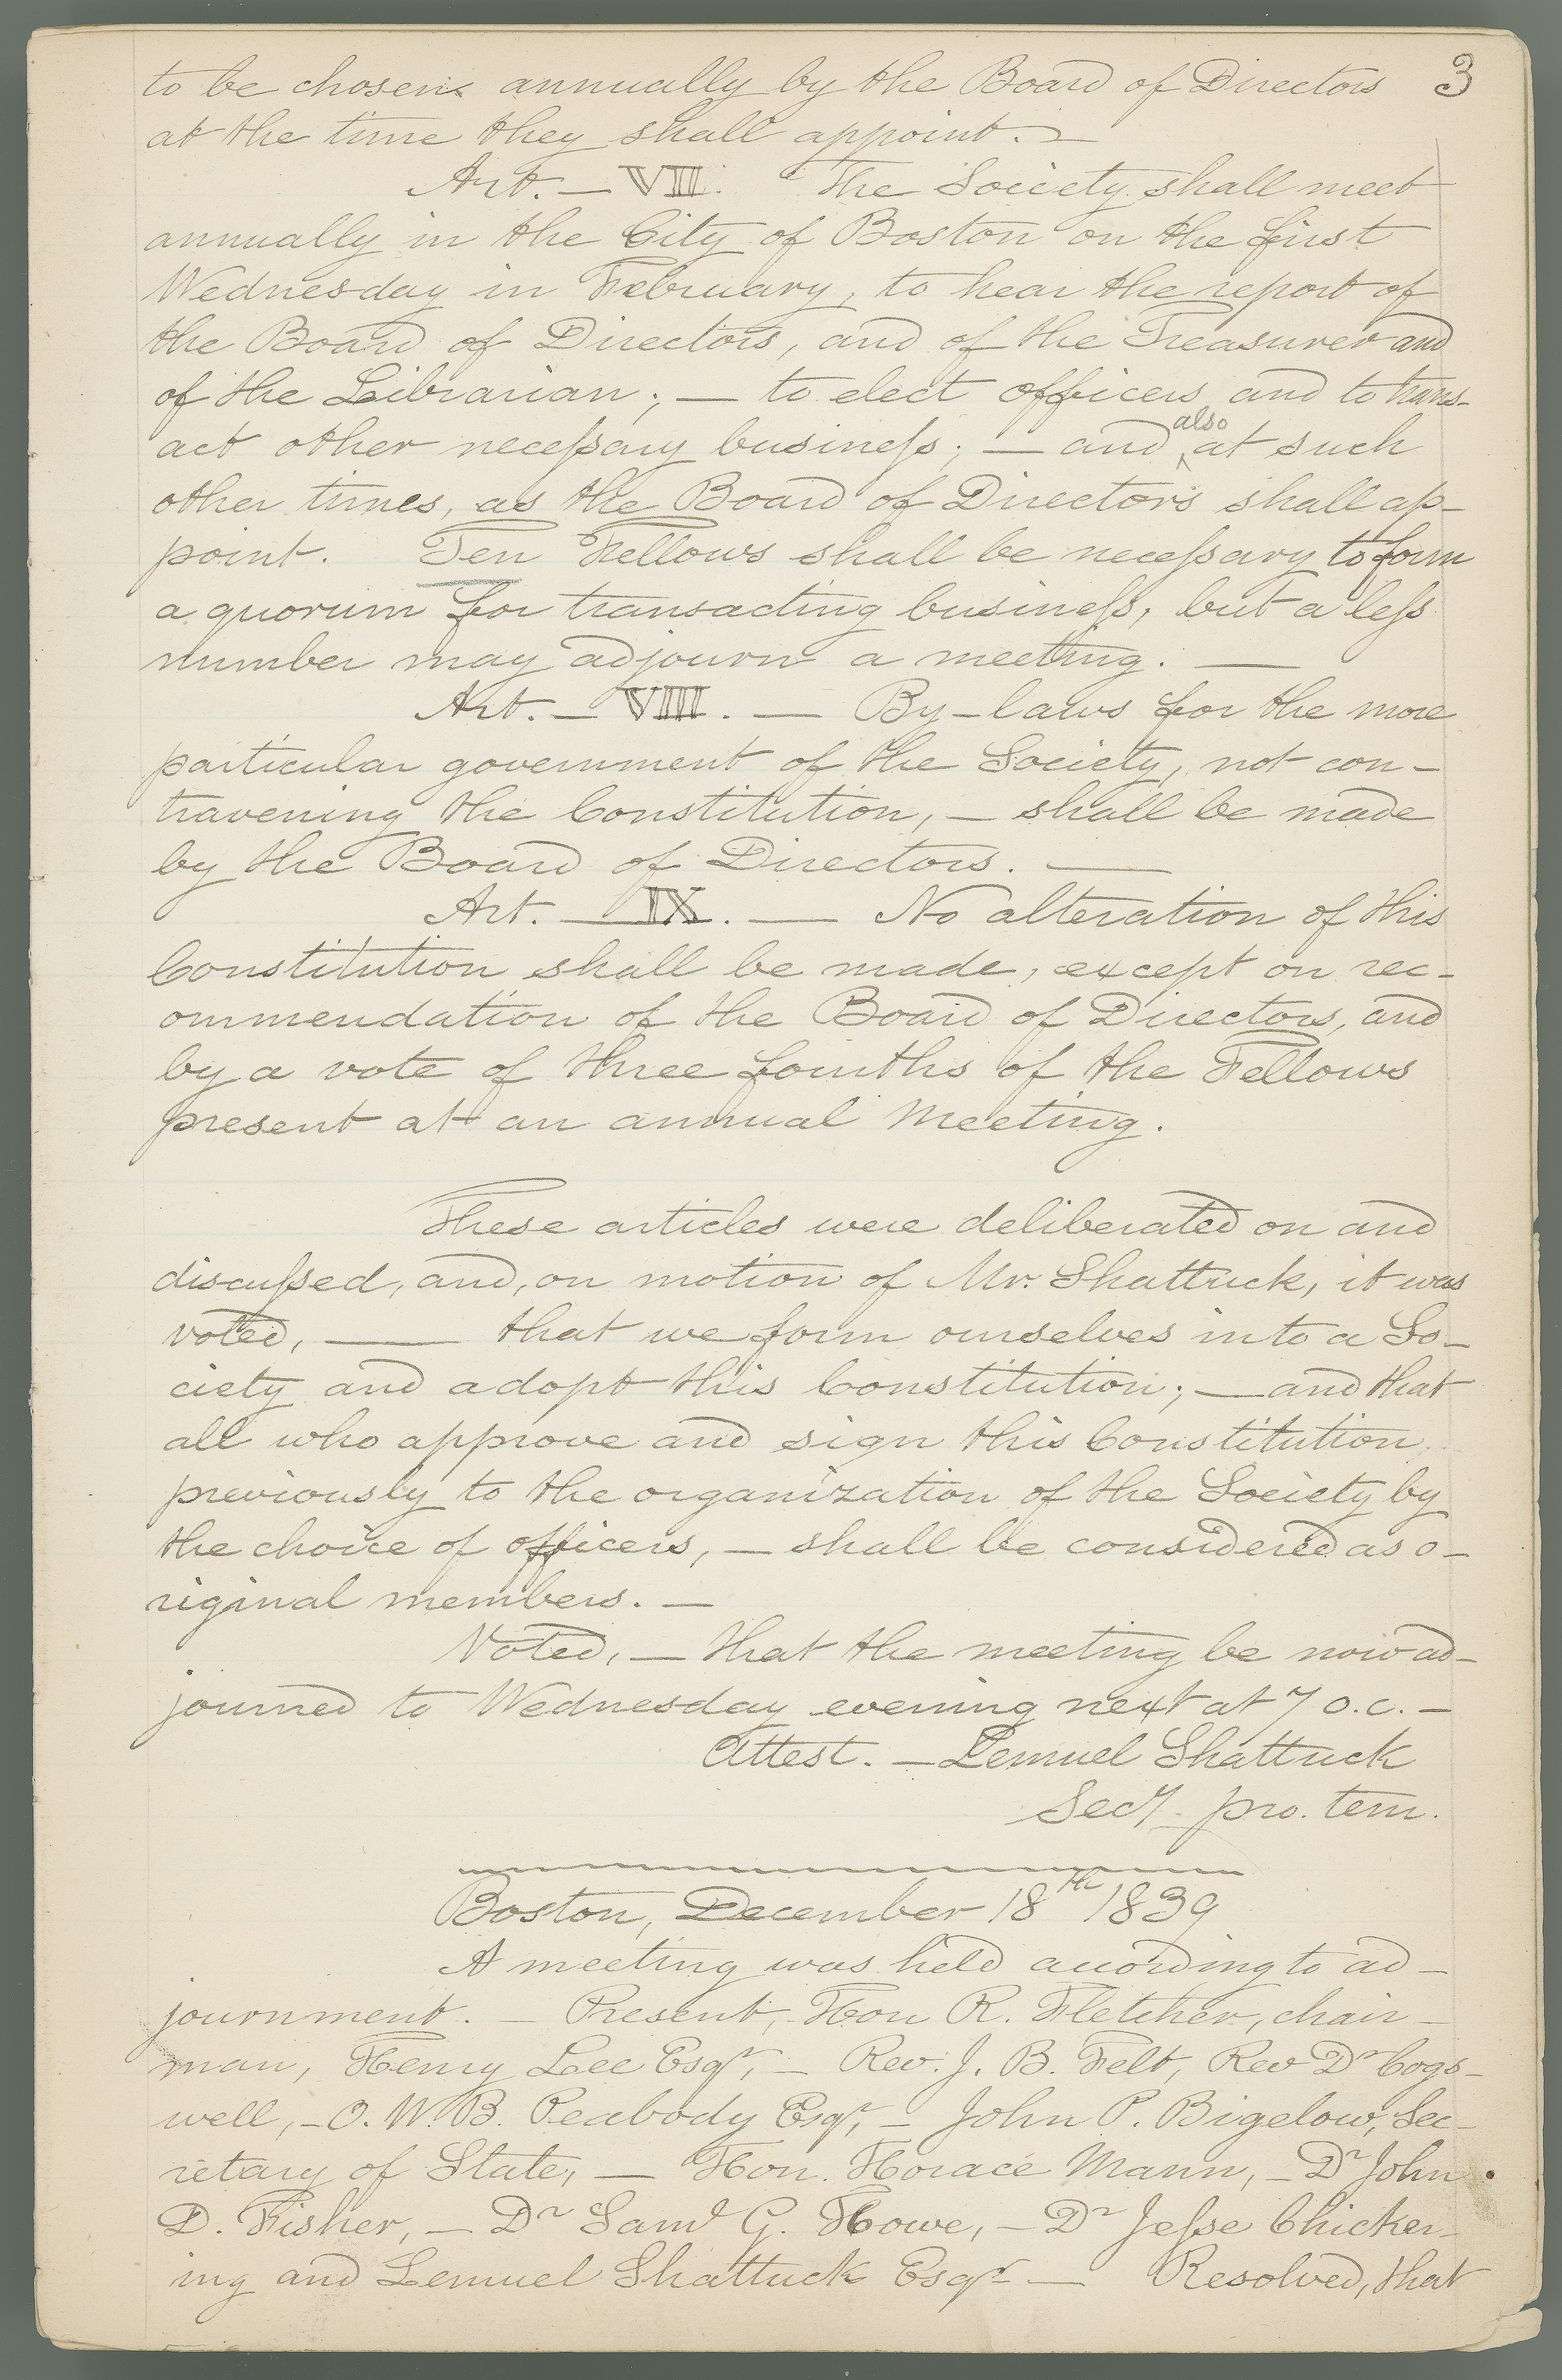 3
to be chosen annually by the Board of Directors
at the time they shall appoint. —
Art. — VII. The Society shall meet
annually in the City of Boston on the first
Wednesday in February, to hear the report of
the Board of Directors, and of the Treasurer and
of the Librarian; — to elect officers and to trans-
act other neceſsary buſineſs; — and also at such
other times, as the Board of Directors shall ap-
point. Ten Fellows shall be neceſsary to form
a quorum for transacting busineſs, but a leſs
number may adjourn a meeting. —
Art. — VIII. — By-laws for the more
particular government of the Society, not con-
travening the Constitution, — shall be made
by the Board of Directors. —
Art. — IX. — No alteration of this
Constitution shall be made, except on rec-
ommendation of the Board of Directors, and
by a vote of three fourths of the Fellows
present at an annual meeting.
These articles were deliberated on and
discuſsed, and, on motion of Mr. Shattuck, it was
voted, — that we form ourselves into a So-
ciety and adopt this Constitution; — and that
all who approve and sign this Constitution,
previously to the organization of the Society by
the choice of officers, — shall be considered as o-
riginal members. —
Voted, — that the meeting be now ad-
journed to Wednesday evening next at 7 o.c. —
Attest. — Lemuel Shattuck
Secy. pro. tem.
Boston, December 18th 1839
A meeting was held according to ad-
journment. — Present, Hon R. Fletcher, chair-
man, Henry Lee Esqr, — Rev. J. B. Felt, Rev Dr Cogs-
well, – O. W. B. Peabody Esqr, — John P. Bigelow, Sec-
retary of State, — Hon. Horace Mann, — Dr John
D. Fisher, — Dr Saml G. Howe, — Dr Jeſse Chicker-
ing and Lemuel Shattuck Esqr — Resolved, that